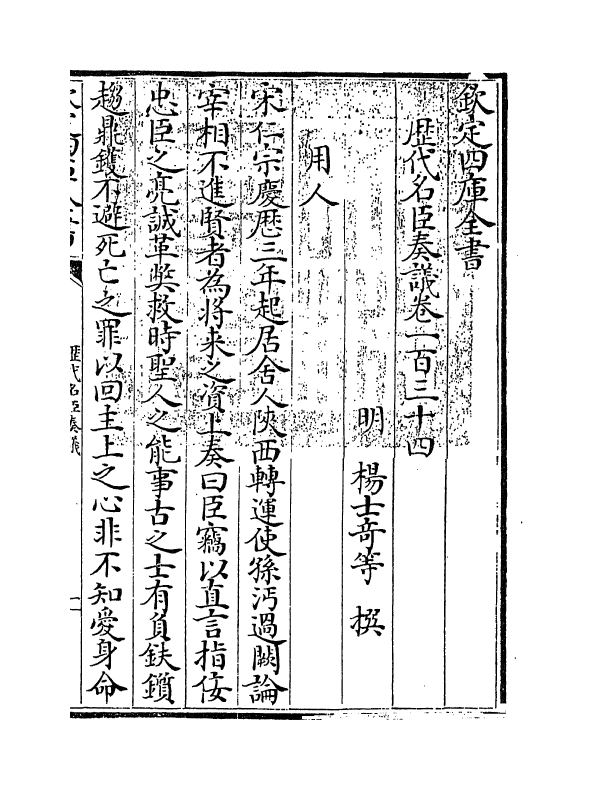 欽定四庫全書
歴代名臣奏議卷一百三十四
明 楊士竒等 撰
用人
宋仁宗慶歴三年起居舍人陜西轉運使孫沔過闕論
宰相不進賢者為將来之資上奏曰臣竊以直言指佞
忠臣之亮誠革弊救時聖人之能事古之士有負鈇鑕
趨鼎鑊不避死亡之罪以回主上之心非不知愛身命
歴代名臣奏議